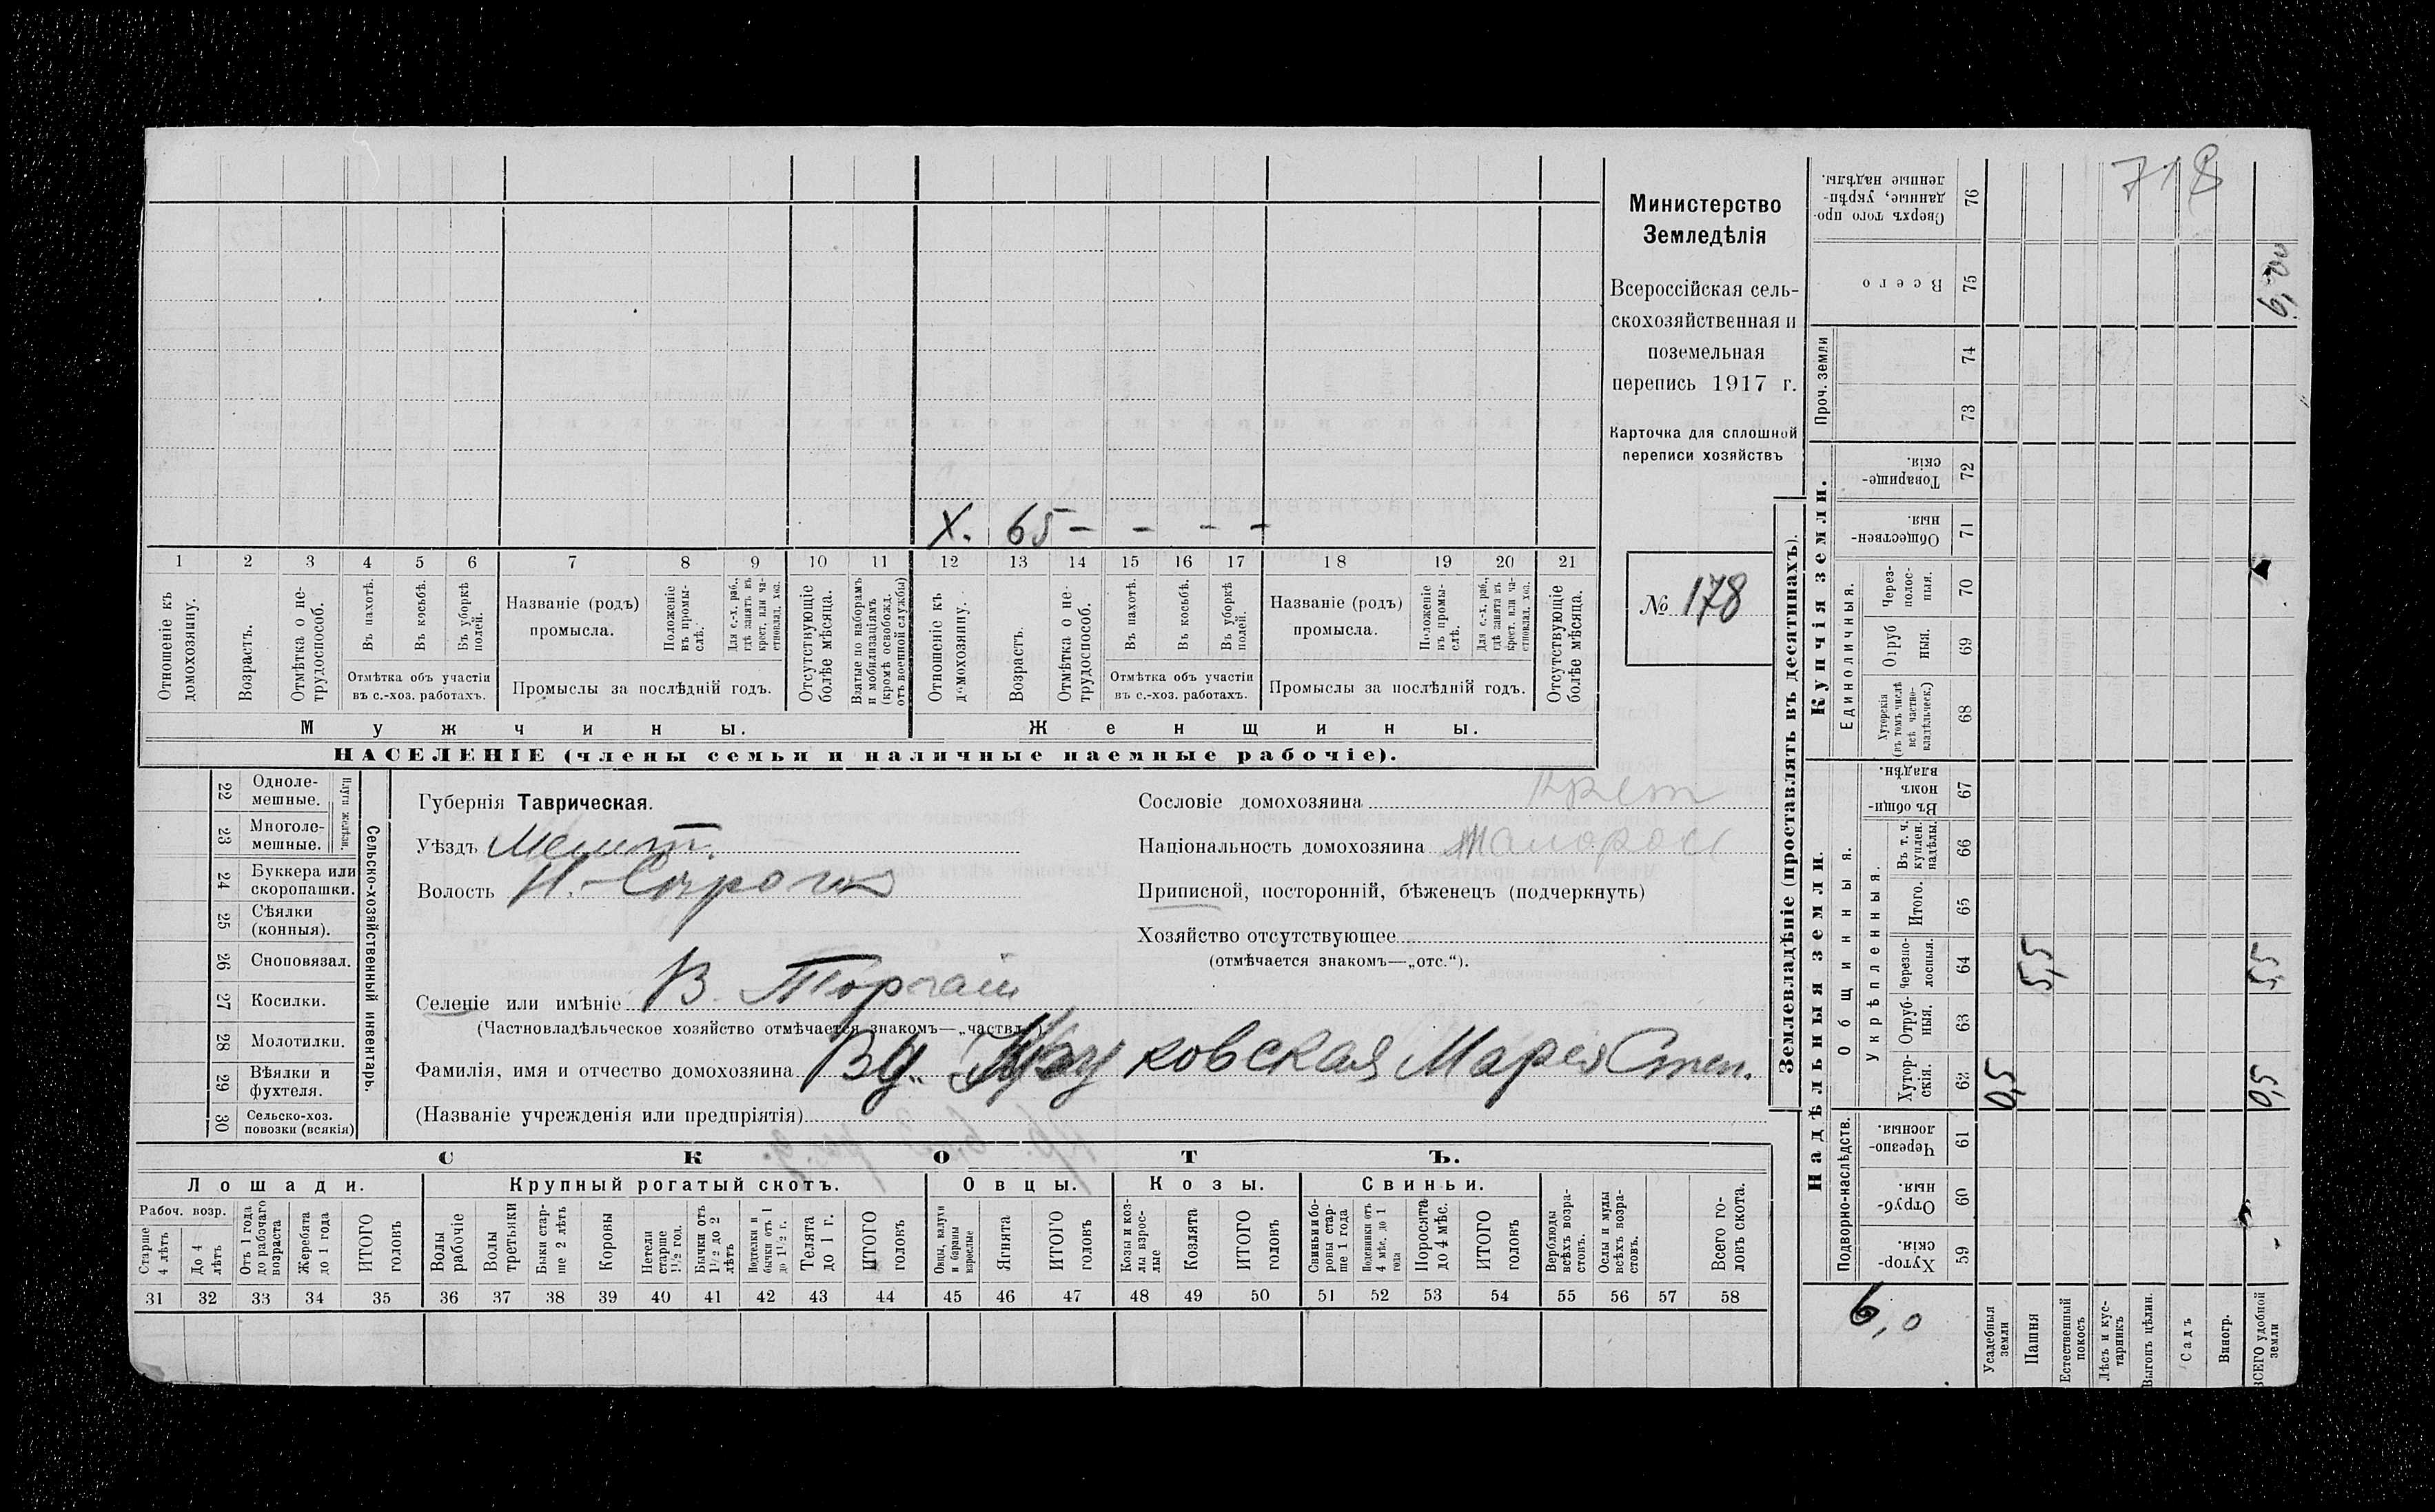 718
Министерство
Земледѣлія
Всероссійская сель-
скохозяйственная и
поземельная
перепись 1917 г.
Карточка для сплошной
переписи хозяйствъ
№ 178
X. 65 - - - -
1 2 3 4 5 6 7 8 9 10 11 12 13 14 15 16 17 18 19 20 21
Отношеніе къ домохозяину.
Возрастъ.
Отмѣтка о не-трудоспособ.
Въ пахотѣ.
Въ косьбѣ.
Въ уборкѣ полей.
Отмѣтка объ участіи
въ с.-хоз. работахъ.
Названіе (родъ)
промысла.
Положеніе въ промы-слѣ.
Для с.-х. раб., гдѣ занятъ въ крест. или ча-стновлад. хоз.
Промыслы за послѣдній годъ.
Отсутствующіе болѣе мѣсяца.
Взятые по наборамъ и мобилизаціямъ (кромѣ освобожд. отъ военной службы)
Отношеніе къ домохозяину.
Возрастъ.
Отмѣтка о не-трудоспособ.
Въ пахотѣ.
Въ косьбѣ.
Въ уборкѣ полей.
Отмѣтка объ участіи
въ с.-хоз. работахъ.
Названіе (родъ)
промысла.
Положеніе въ промы-слѣ.
Для с.-х. раб., гдѣ занята въ крест. или ча-стновлад. хоз.
Промыслы за послѣдній годъ.
Отсутствующіе болѣе мѣсяца.
Мужчины. Женщины.
НАСЕЛЕНІЕ (члены семьи и наличные наемные рабочіе).
Сельско-хозяйственный инвентарь.
Плуги желѣзн.
22 Одноле-мешные.
23 Многоле-мешные.
24 Буккера или скоропашки.
25 Сѣялки (конныя).
26 Сноповязал.
27 Косилки.
28 Молотилки.
29 Вѣялки и фухтеля.
30 Сельско-хоз. повозки (всякія)
Губернія Таврическая.
Уѣздъ Мелит.
Волость Н.-Сѣрогоз
Селеніе или имѣніе В. Торгаи
(Частновладѣльческое хозяйство отмѣчается знакомъ—„частвл.")
Фамилія, имя и отчество домохозяина ковская Марія Степ.
(Названіе учрежденія или предпріятія)
Сословіе домохозяина Крест
Національность домохозяина Малоросс
Приписной, посторонній, бѣженецъ (подчеркнуть)
Хозяйство отсутствующее
(отмѣчается знакомъ—„отс.").
СКОТЪ.
Лошади. Крупный рогатый скотъ. Овцы. Козы. Свиньи.
Рабоч. возр.
Старше 4 лѣтъ
До 4 лѣтъ
Отъ 1 года до рабочаго возраста
Жеребята до 1 года
ИТОГО головъ
Волы рабочіе
Волы третьяки
Быки стар-ше 2 лѣтъ
Коровы
Нетели старше 1½ год.
Бычки отъ 1½ до 2 лѣтъ
Подтелки и бычки отъ 1 до 1½ г.
Телята до 1 г.
ИТОГО головъ
Овцы, валухи и бараны взрослые
Ягнята
ИТОГО головъ
Козы и коз-лы взрос-лые
Козлята
ИТОГО головъ
Свиньи и бо-ровы стар-ше 1 года
Подсвинки отъ 4 мѣс. до 1 года
Поросята до 4 мѣс.
ИТОГО головъ
Верблюды всѣхъ возра-стовъ.
Ослы и мулы всѣхъ возра-стовъ.
Всего го-ловъ скота.
31 32 33 34 35 36 37 38 39 40 41 42 43 44 45 46 47 48 49 50 51 52 53 54 55 56 57 58
Землевладѣніе (проставлять въ десятинахъ).
Купчія земли.
Надѣльныя земли.
Сверхъ того про-данные, укрѣп-ленные надѣлы. 76
Всего 75 6,00
Проч. земли 74 73
Товарище-скія. 72
Обществен-ныя. 71
Единоличныя.
Через-полос-ныя. 70
Отруб ныя. 69
Хуторскія (въ томъ числѣ всѣ частно-владѣльческ.) 68
Въ общи-номъ владѣн. 67
Общинныя.
Укрѣпленныя.
Въ т. ч. куплен. надѣлы. 66
Итого. 65
Черезпо-лосныя. 64 5,5 5,5
Отруб-ныя. 63
Хутор-скія. 62 0,5 0,5
Подворно-наслѣдств.
Черезпо-лосныя. 61
Отруб-ныя. 60
Хутор-скія. 59
6,0
Усадебныя земли
Пашня
Естественный покосъ
Лѣсъ и кус-тарникъ
Выгонъ цѣлин.
Садъ
Виногр.
ВСЕГО удобной земли